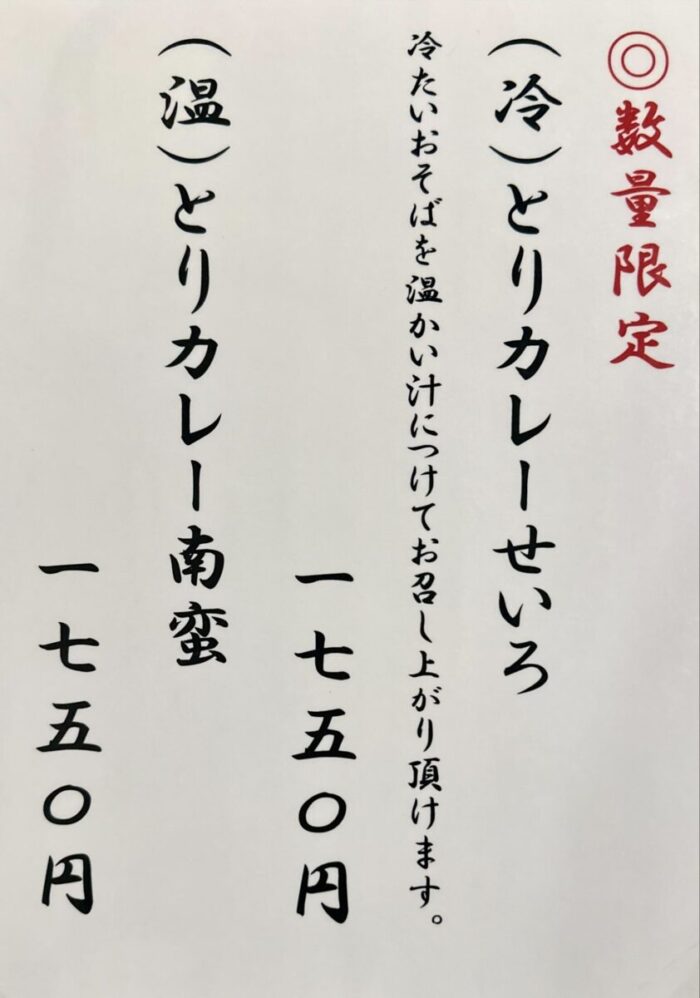 ◎数量限定
（冷）とりカレーせいろ
冷たいおそばを温かい汁につけてお召し上がり頂けます。
一七五〇円
（温）とりカレー南蛮
一七五〇円